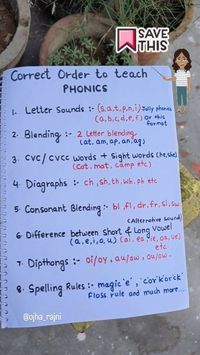 SAVE
THIS
Correct Order to teach
PHONICS
1. Letter Sounds :- (s,a,t,p,n,i) Jolly phonics
(a,b,c,d,e,f) Or this format
2. Blending :- 2 letter blending
(at, am, ap, an, ag)
3. CVC/CVCC words + Sight words (he, she)
(Cat. mat. camp etc
4. Diagraphs :- ch, sh, th, wh. ph etc
5. Consonant Blending :- bl, fl, dr. fr. sl, sw
(Alternative sound)
6. Difference between Short & Long Vowel
(a,e,i,o,u) (ai, ea, ie, oa, ue)
etc
7. Dipthongs :- oi/oy, au/aw, ou/ow.
8. Spelling Rules :- magic 'e', 'c'or'k'or'ck'
Floss rule and much more....
@ojha_rajni